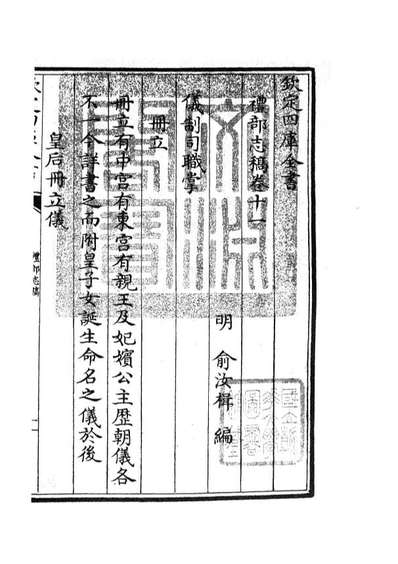 欽定四庫全書
禮部志稿卷十一
明 俞汝楫 編
儀制司職掌
冊立
冊立有中宮有東宮有親王及妃嬪公主歴朝儀各
不一今詳書之而附皇子女誕生命名之儀於後
皇后冊立儀
禮部志稿